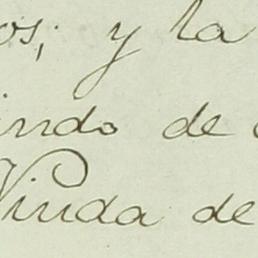 os; y la
indo de
Viuda de